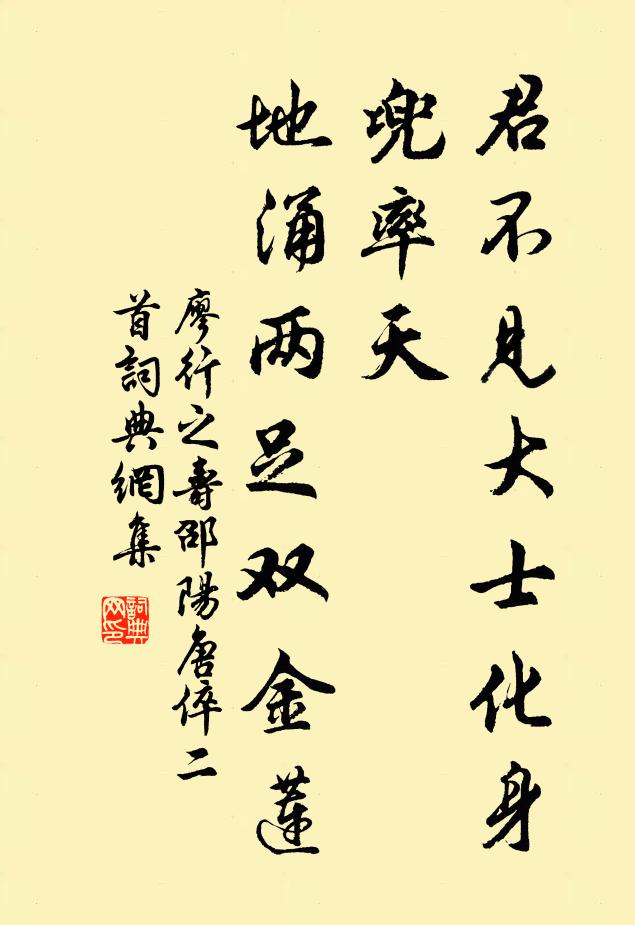 君不見大士化身
兜率天
地涌两足双金蓮
廖行之壽邵陽唐倅二
首詞典網集
詞典
网印